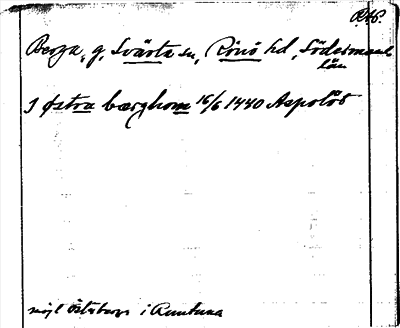 RAÖ.
Berga, g, Svärta sn, Rönö hd, Södermanl.
län
I Østra bærghom 16/6 1440 Aspolöt
möjl Österberga i Runtuna